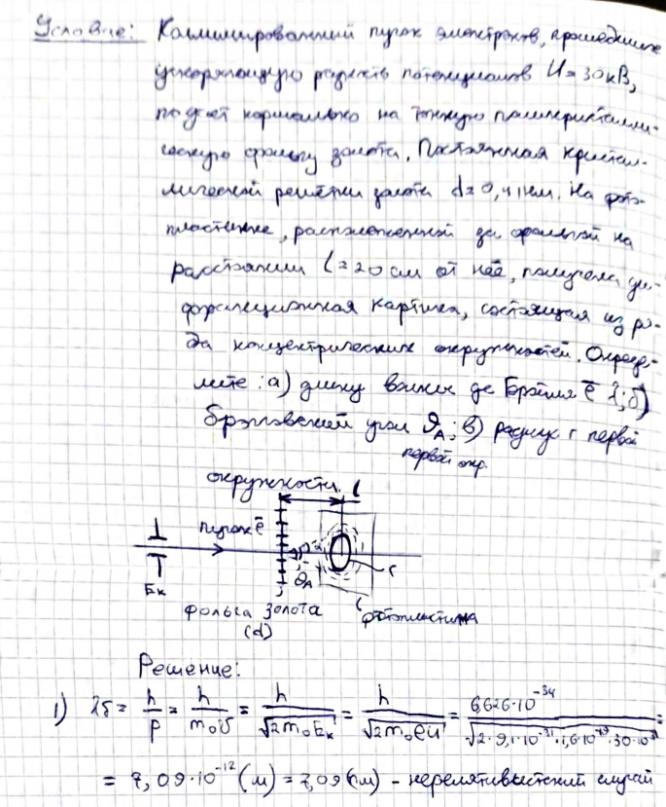 Условие: Коллимированный пучок электронов, прошедших
ускоряющую разность потенциалов U=30кВ,
падает нормально на тонкую поликристалли-
ческую фольгу золота. Постоянная кристал-
лической решётки золота d=0,41нм. На фото-
пластинке, расположенной за фольгой на
расстоянии l=20 см от неё, получена ди-
фракционная картина, состоящая из ря-
да концентрических окружностей. Опреде-
лите: а) длину волны де Бройля ē λ; б)
брэгговский угол θ_A; в) радиус r первой
первой окр.
окружности.
l
пучок ē
α
θ_A
r
E_к
фольга золота
фотопластина
(d)
Решение:
1) λ_Б = h/p = h/(m₀υ) = h/√(2m₀E_к) = h/√(2m₀eU) = 6,626·10⁻³⁴/√(2·9,1·10⁻³¹·1,6·10⁻¹⁹·30·10³) =
= 7,09·10⁻¹² (м) = 7,09 (пм) - нерелятивистский случай